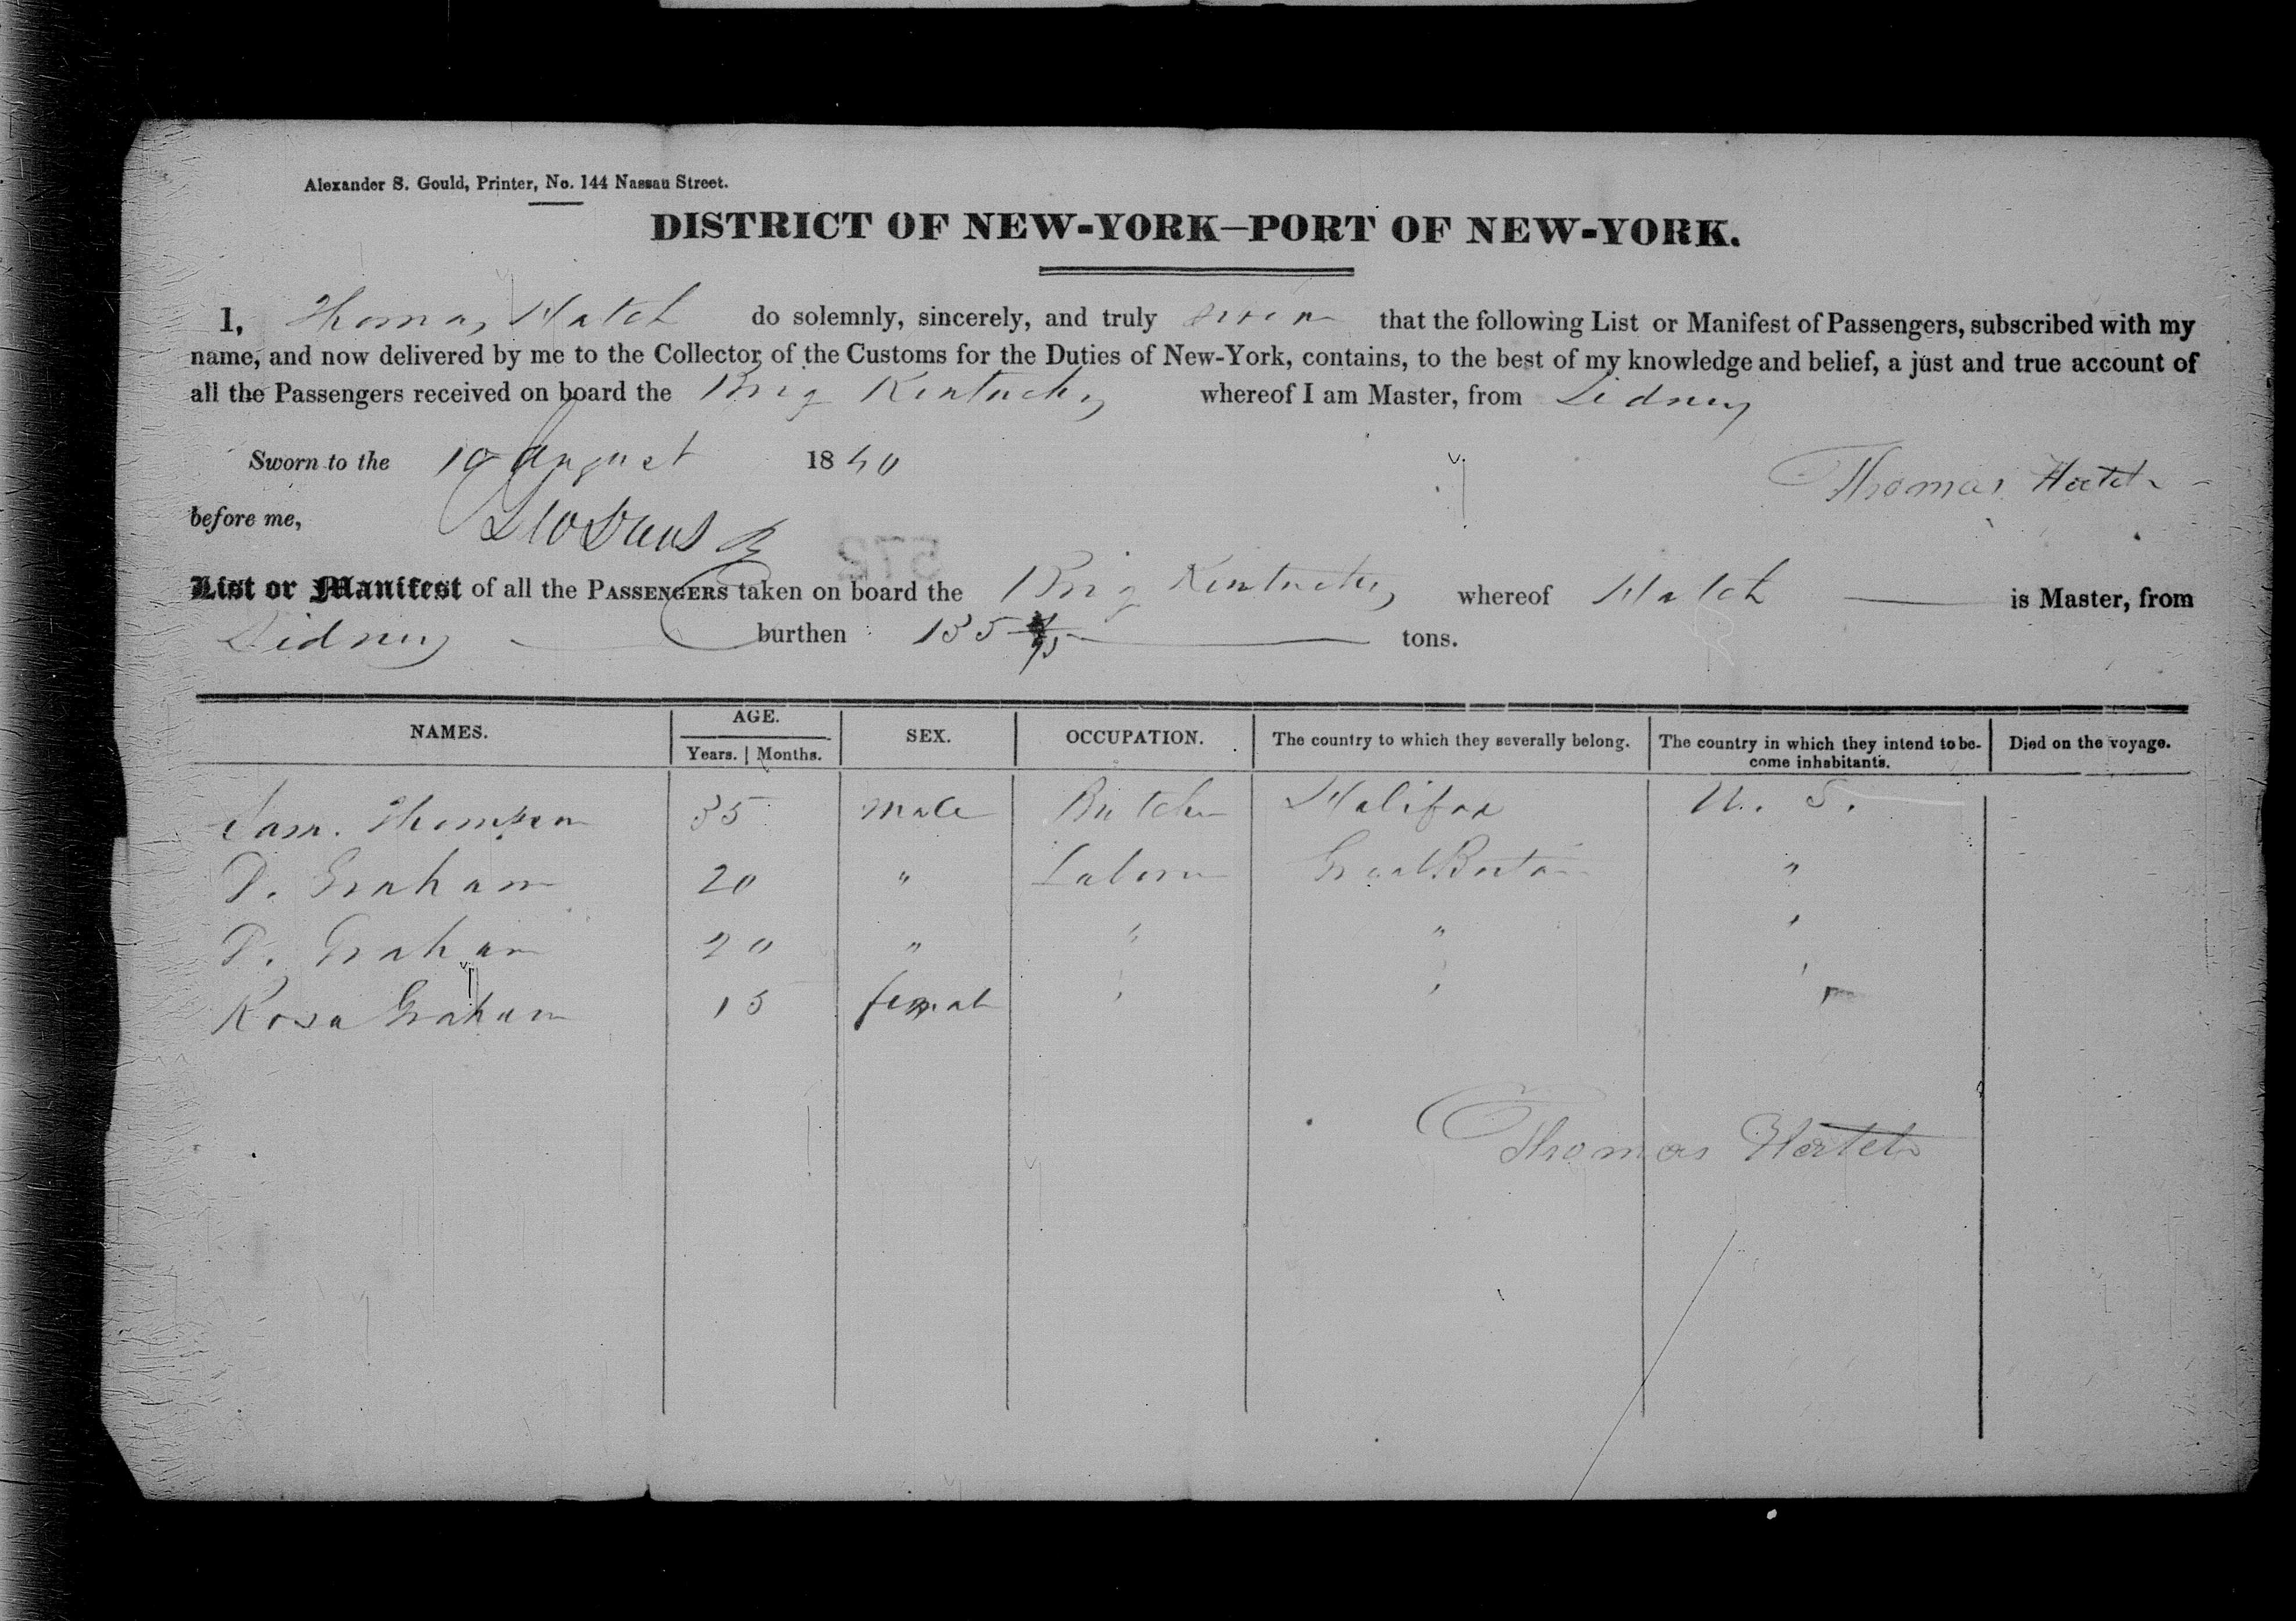 Alexander S. Gould, Printer, No. 144 Nassau Street.
DISTRICT OF NEW-YORK—PORT OF NEW-YORK.
I, Thomas Hatch do solemnly, sincerely, and truly swear that the following List or Manifest of Passengers, subscribed with my
name, and now delivered by me to the Collector of the Customs for the Duties of New-York, contains, to the best of my knowledge and belief, a just and true account of
all the Passengers received on board the Brig Kentucky whereof I am Master, from Sidney
Sworn to the 10 August 1840
Thomas Hatch
before me,
572
List or Manifest of all the PASSENGERS taken on board the Brig Kentucky whereof Hatch is Master, from
Sidney burthen 135 /95 tons.
NAMES. AGE. SEX. OCCUPATION. The country to which they severally belong. The country in which they intend to be- Died on the voyage.
Years. Months. come inhabitants.
Sam. Thompson 35 male Butcher Halifax U. S.
D. Graham 20 " Laborer Great Britain "
P. Graham 20 " " " "
Rosa Graham 15 female " " "
Thomas Hatch